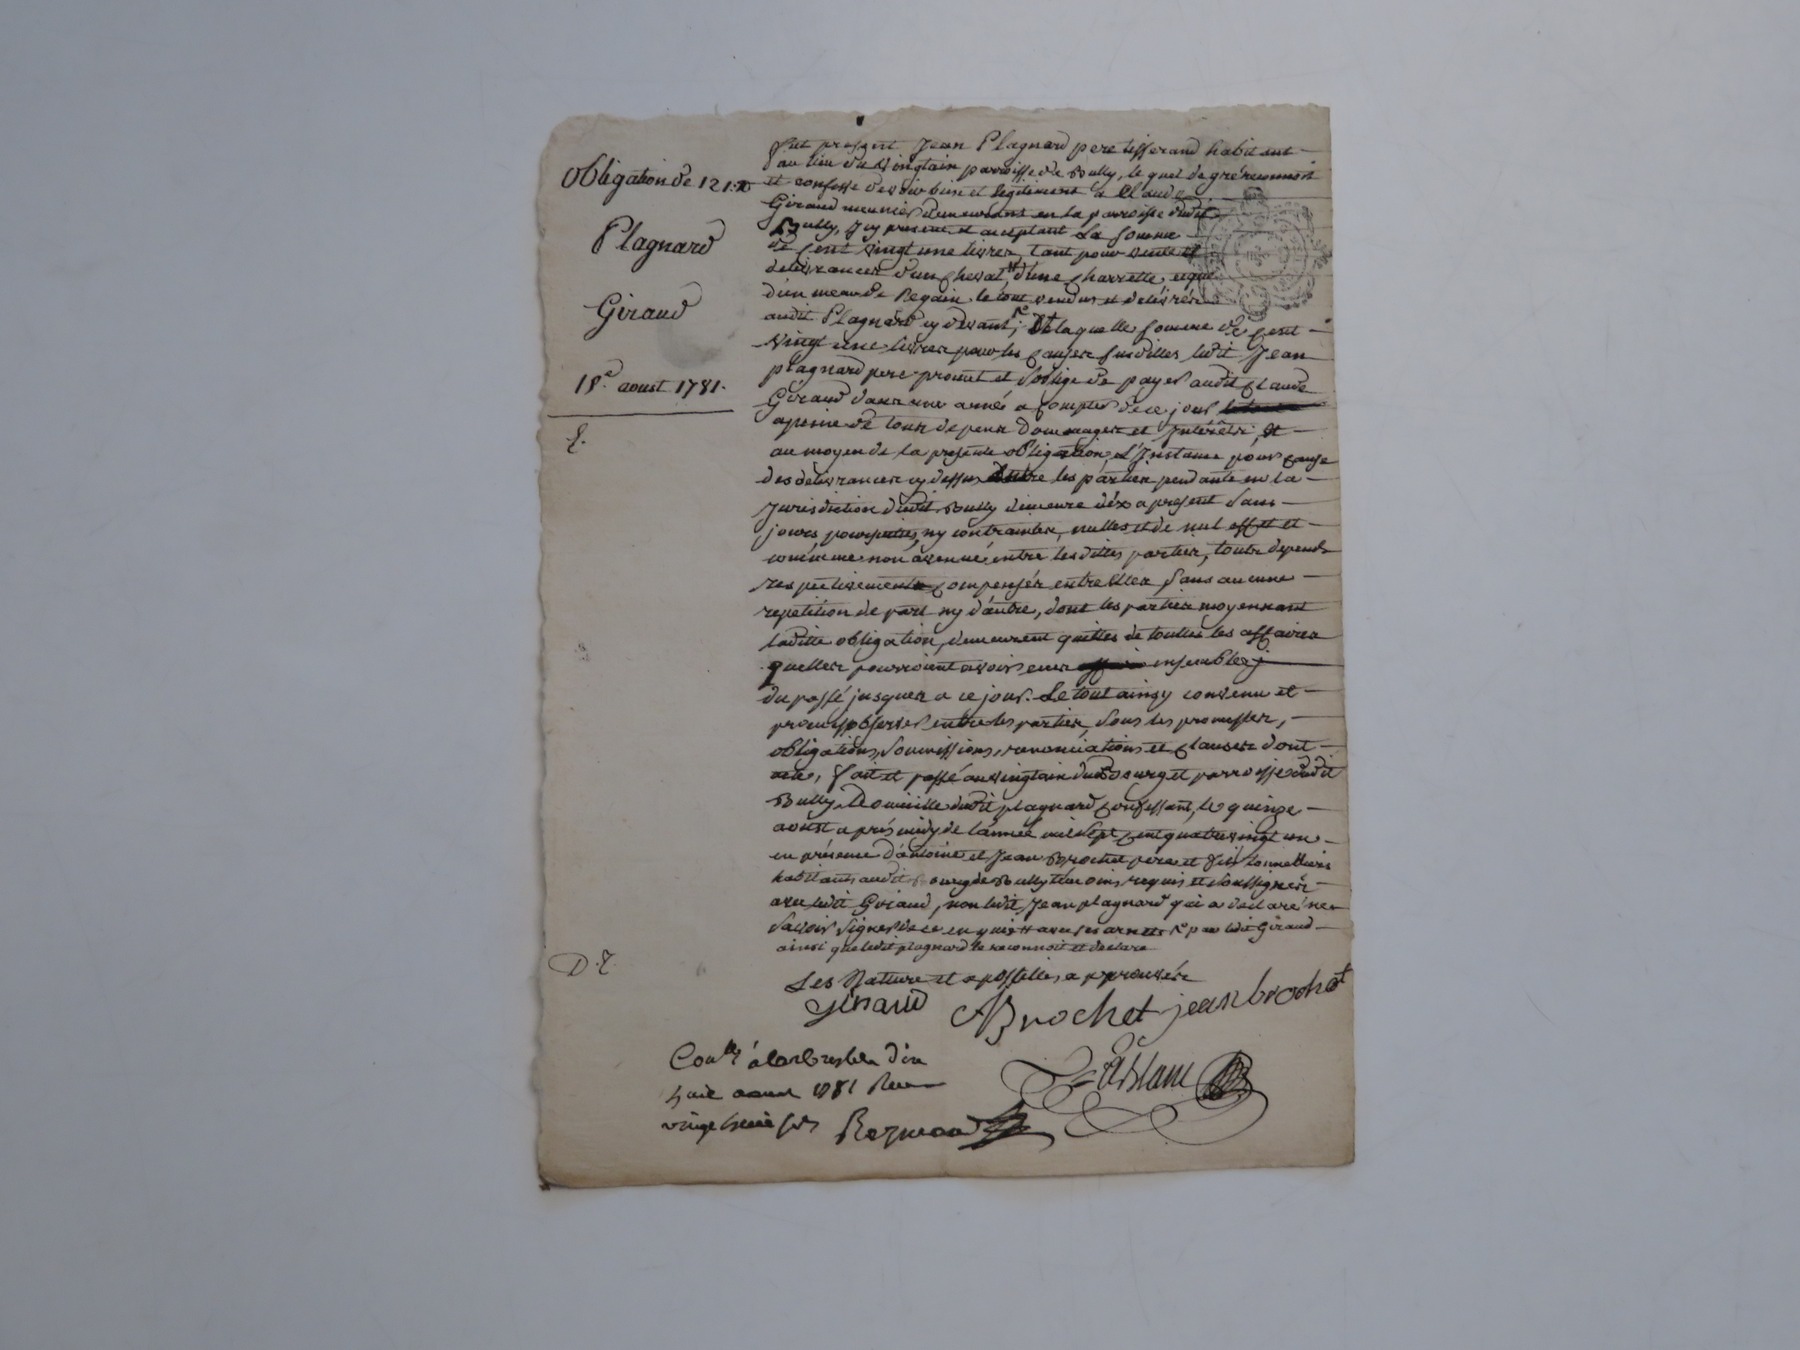 Obligation de 121 #
Plagnard
Giraud
15.e aoust 1781.
D. 2.
fut present Jean Plagnard pere tisserand habitant
au lieu du vingtain parroisse de Bully, le quel de gré reconnoit
et confesse devoir bien et legitimement a Claude
Giraud meunier demeurant en la parroisse dudit
Bully, icy present et acceptant La somme
de Cent vingt une livres, tant pour vente et
delivrances d'un Cheval, d'une Charrette, que
d'un de Regain le tout vendus et delivrés
audit Plagnard cy devant; Et laquelle somme de Cent
vingt une livres pour les causes susdittes ledit Jean
plagnard pere promet et s'oblige de payer audit Claude
Giraud dans une année a Compter de ce jour
a peine de tous depens dommages et Intérêts, et
au moyen de la presente obligation, L'Instance pour cause
des delivrances cy dessus entre les parties pendante en la
Jurisdiction dudit Bully demeure déz a present sans
jours poursuittes, ny contraintes, nulles et de nul effet et
comme non avenüe entre lesdittes parties, touts depends
respectivements Compensés entre Elles, sans aucune
repetition de part ny d'autre, dont les parties moyennant
laditte obligation, demeurent quittes de touttes les affaires
quelles pourroient avoir eues ensembles
du passé jusques a ce jour. Le tout ainsy convenu et
promis observer entre les parties, sous les promesses,
obligations, soumissions, renonciations et Clauses dont
acte, fait et passé au vingtain du Bourg et parroisse dudit
Bully Domicille dudit plagnard Confessant, le quinze
aoust après midy de l'année mil sept Cent quatre vingt un
en présence d'antoine et Jean Brochet pere et fils tonnelliers
habitants audit Bourg de Bully témoins requis et soussignés
avec ledit Giraud, non ledit Jean plagnard qui a declaré ne
savoir signer de ce enquis avec ses par ledit Giraud
ainsi que ledit plagnard le reconnoit et declare
Les Rature et apostilles approuvés
Giraud Brochet jean brochet
Conllé à Larbresle Dix
huit aoust 1781 Reçu
vingt huit sols